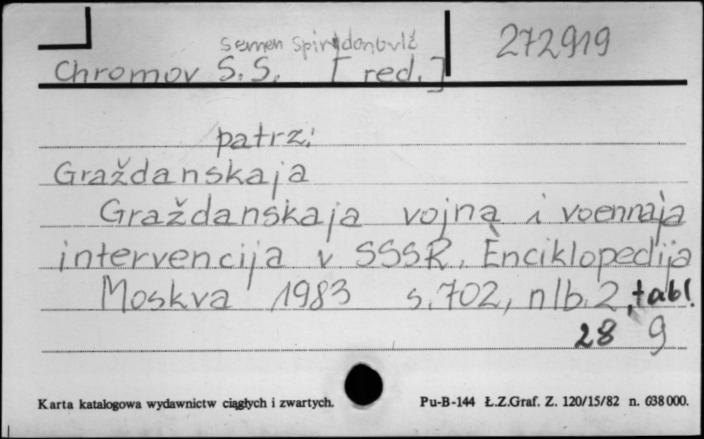 Semen Spirydonovič
272919
Chromov S. S. [red.]
patrz:
Graždanskaja
Graždanskaja vojna i voennaja
intervencija v SSSR. Ènciklopedija
Moskva 1983 s. 702, nlb. 2, tabl.
28 9
Karta katalogowa wydawnictw ciągłych i zwartych.
Pu-B-144 Ł.Z.Graf. Z. 120/15/82 n. 638 000.